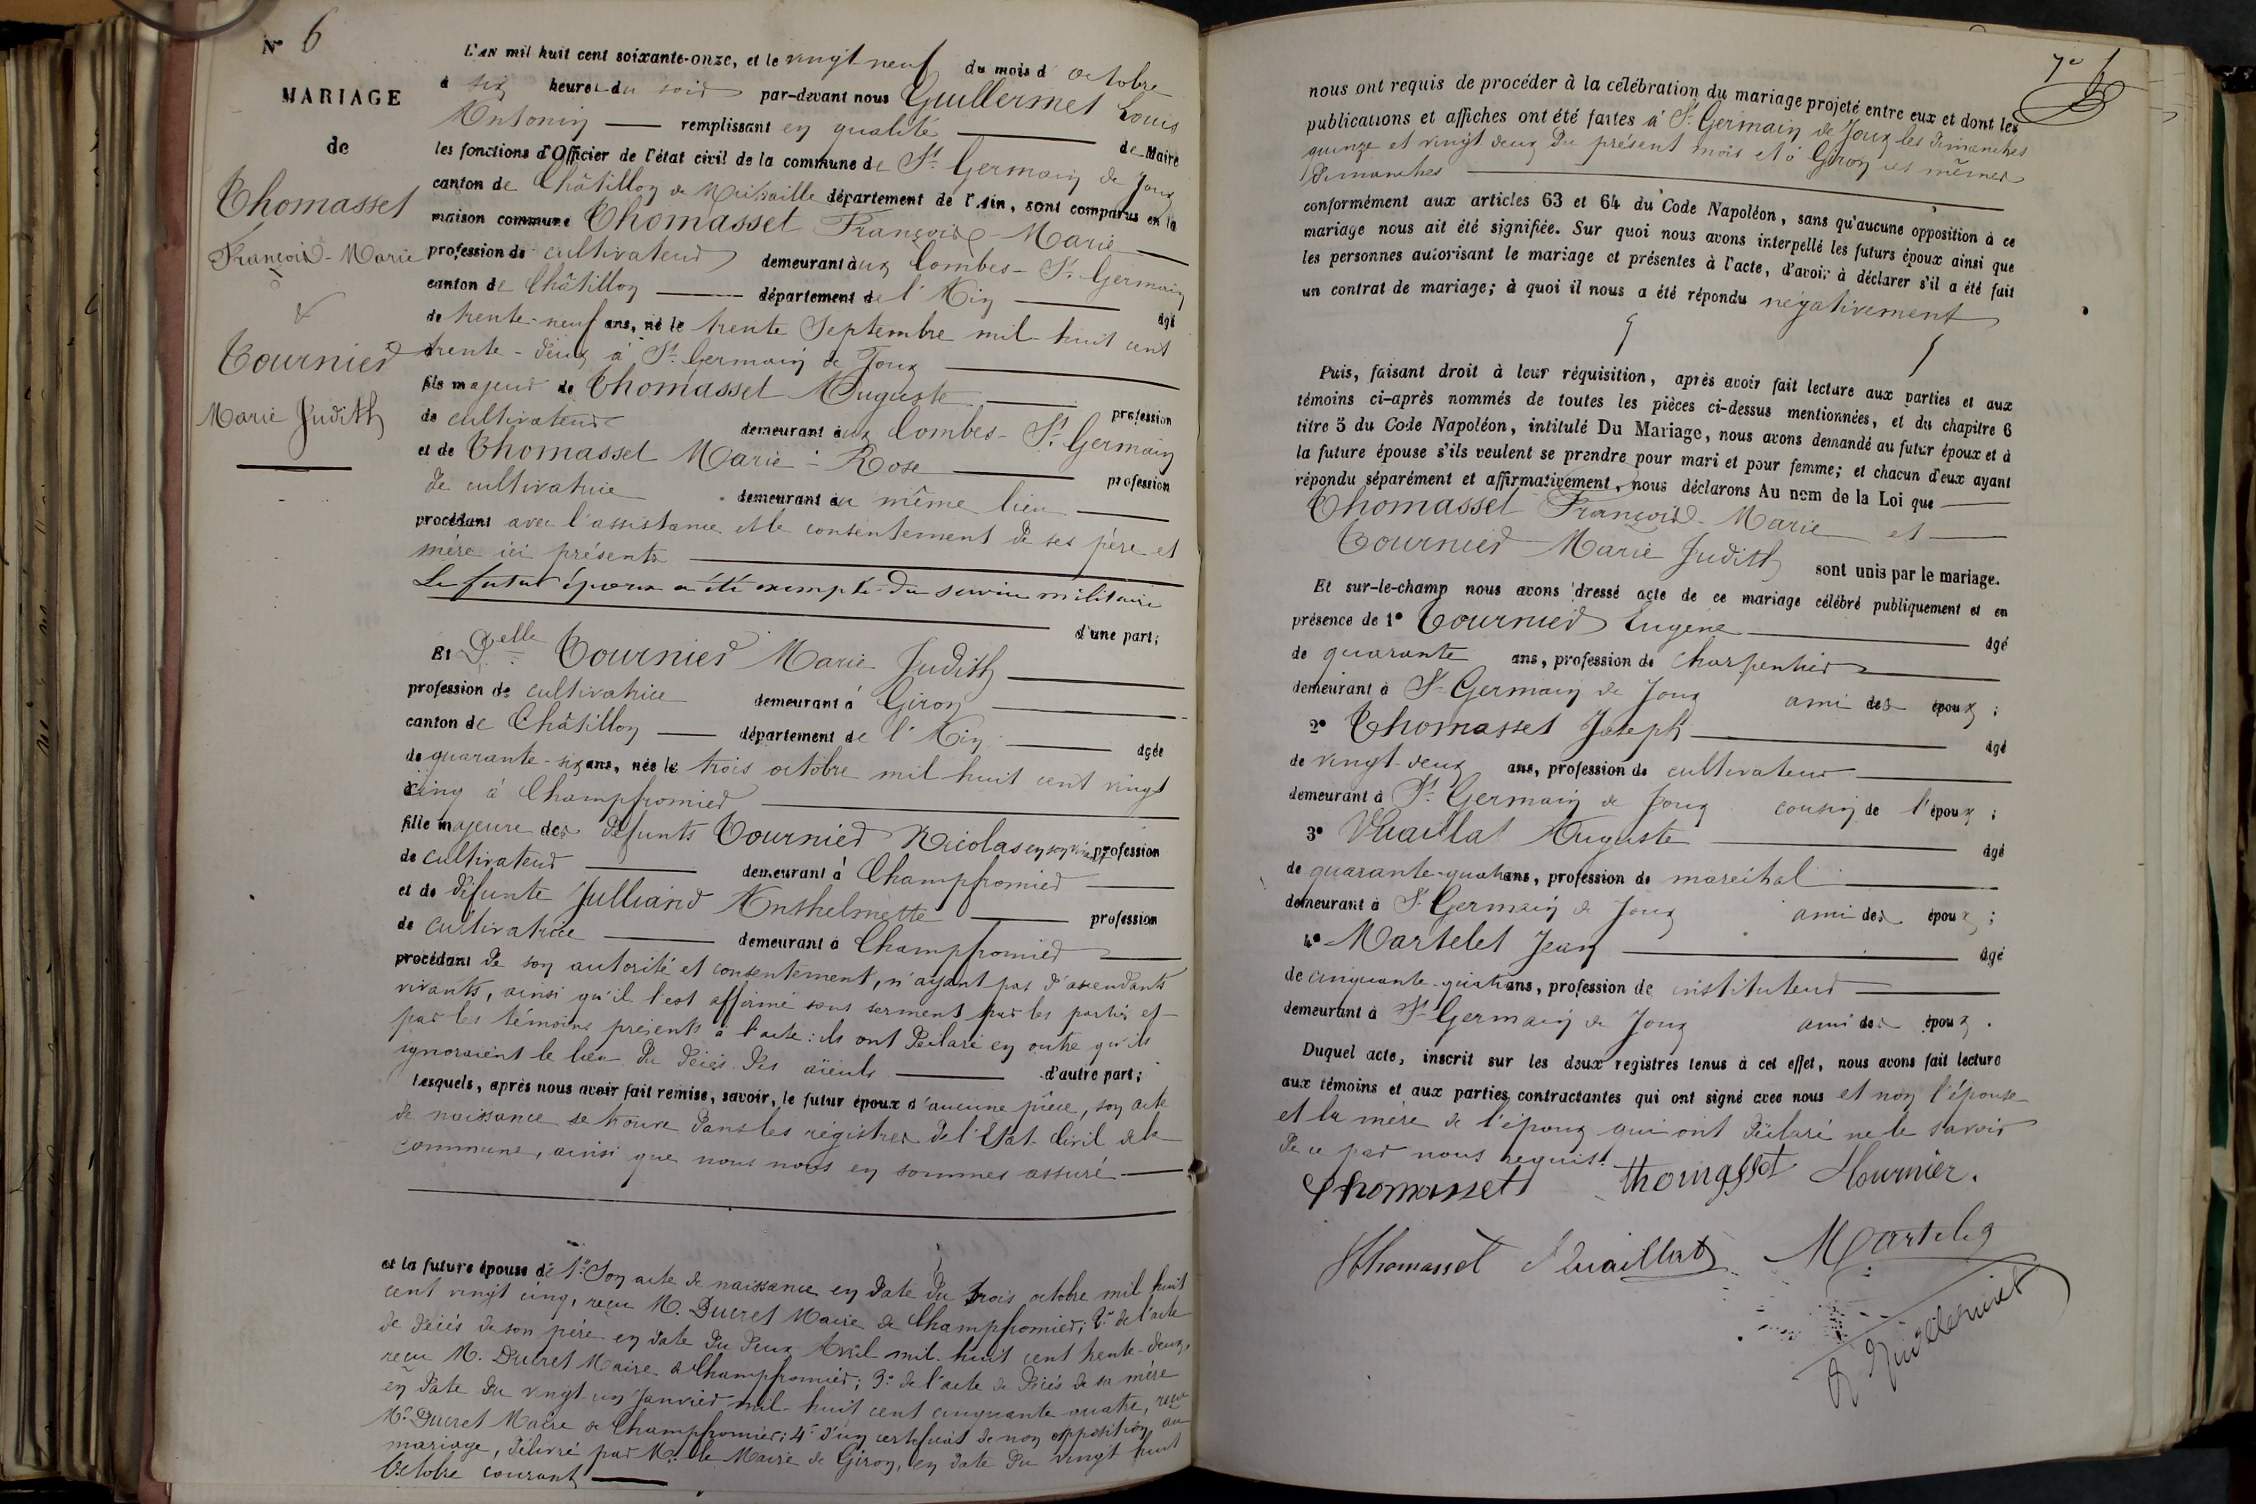 N° 6
MARIAGE
de
Thomasset
François-Marie
&
Tournier
Marie Judith
L'AN mil huit cent soixante-onze, et le vingt neuf du mois d'octobre
à six heures du soir par-devant nous Guillermet Louis
Antonin remplissant en qualité de Maire
les fonctions d'Officier de l'état civil de la commune de St Germain de Joux
canton de Châtillon de Michaille département de l'Ain, sont comparus en la
maison commune Thomasset François-Marie
profession de cultivateur demeurant aux Combes-St Germain
canton de Châtillon département de l'Ain âgé
de trente-neuf ans, né le trente Septembre mil huit cent
trente-deux à St Germain de Joux
fils majeur de Thomasset Auguste profession
de cultivateur demeurant aux Combes-St Germain
et de Thomasset Marie-Rose profession
de cultivatrice demeurant au même lieu
procédant avec l'assistance et le consentement de ses père et
mère ici présents
Le futur époux a été exempté du service militaire
d'une part;
Et Delle Tournier Marie Judith
profession de cultivatrice demeurant à Giron
canton de Châtillon département de l'Ain âgée
de quarante-six ans, née le trois octobre mil huit cent vingt
cinq à Champfromier
fille majeure des défunts Tournier Nicolas en son vivant profession
de cultivateur demeurant à Champfromier
et de défunte Julliand Anthelmette profession
de cultivatrice demeurant à Champfromier
procédant de son autorité et consentement, n'ayant pas d'ascendants
vivants, ainsi qu'il l'est affirmé sous serment par les parties et
par les témoins présents à l'acte: ils ont déclaré en outre qu'ils
ignoraient le lieu du décès des aïeuls d'autre part;
Lesquels, après nous avoir fait remise, savoir, le futur époux d'aucune pièce, son acte
de naissance se trouve dans les régistres de l'Etat Civil de la
commune, ainsi que nous nous en sommes assuré
et la future épouse de 1° Son acte de naissance en date du trois octobre mil huit
cent vingt cinq, reçu M. Ducret Maire de Champfromier; 2° de l'acte
de décés de son père en date du deux Avril mil huit cent trente-deux,
reçu M. Ducret Maire de Champfromier; 3° de l'acte de décés de sa mère
en date du vingt un Janvier mil huit cent cinquante quatre, reçu
Mr Ducret Maire de Champfromier; 4° d'un certificat de non opposition au
mariage, délivré par Mr le Maire de Giron, en date du vingt huit
Octobre courant
7e
nous ont requis de procéder à la célébration du mariage projeté entre eux et dont les
publications et affiches ont été faites à St Germain de Joux les dimanches
quinze et vingt deux du présent mois et à Giron les mêmes
dimanches
conformément aux articles 63 et 64 du Code Napoléon, sans qu'aucune opposition à ce
mariage nous ait été signifiée. Sur quoi nous avons interpellé les futurs époux ainsi que
les personnes autorisant le mariage et présentes à l'acte, d'avoir à déclarer s'il a été fait
un contrat de mariage; à quoi il nous a été répondu négativement
Puis, faisant droit à leur réquisition, après avoir fait lecture aux parties et aux
témoins ci-après nommés de toutes les pièces ci-dessus mentionnées, et du chapitre 6
titre 5 du Code Napoléon, intitulé Du Mariage, nous avons demandé au futur époux et à
la future épouse s'ils veulent se prendre pour mari et pour femme; et chacun d'eux ayant
répondu séparément et affirmativement, nous déclarons Au nom de la Loi que
Thomasset François-Marie et
Tournier Marie Judith sont unis par le mariage.
Et sur-le-champ nous avons dressé acte de ce mariage célébré publiquement et en
présence de 1° Tournier Eugène âgé
de quarante ans, profession de charpentier
demeurant à St Germain de Joux ami des époux;
2° Thomasset Joseph âgé
de vingt-deux ans, profession de cultivateur
demeurant à St Germain de Joux cousin de l'époux;
3° Vuaillat Auguste âgé
de quarante-quatre ans, profession de maréchal
demeurant à St Germain de Joux ami des époux;
4° Martelet Jean âgé
de cinquante-quatre ans, profession de instituteur
demeurant à St Germain de Joux ami des époux.
Duquel acte, inscrit sur les deux registres tenus à cet effet, nous avons fait lecture
aux témoins et aux parties contractantes qui ont signé avec nous et non l'épouse
et la mère de l'époux qui ont déclaré ne le savoir
de ce par nous requis.
Thomasset thomasset Tournier.
Thomasset Vuaillat Martelet
Guillermet